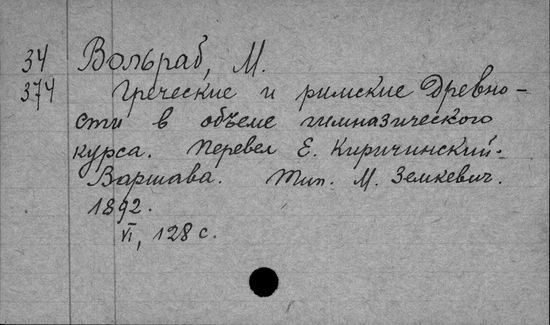 34 Вольраб, М.
374 Греческие и римские Древно-
сти в объеме гимназического
курса. Перевел Е. Киричинский.
Варшава. Тип. М. Земкевич.
1892.
VI, 128 с.